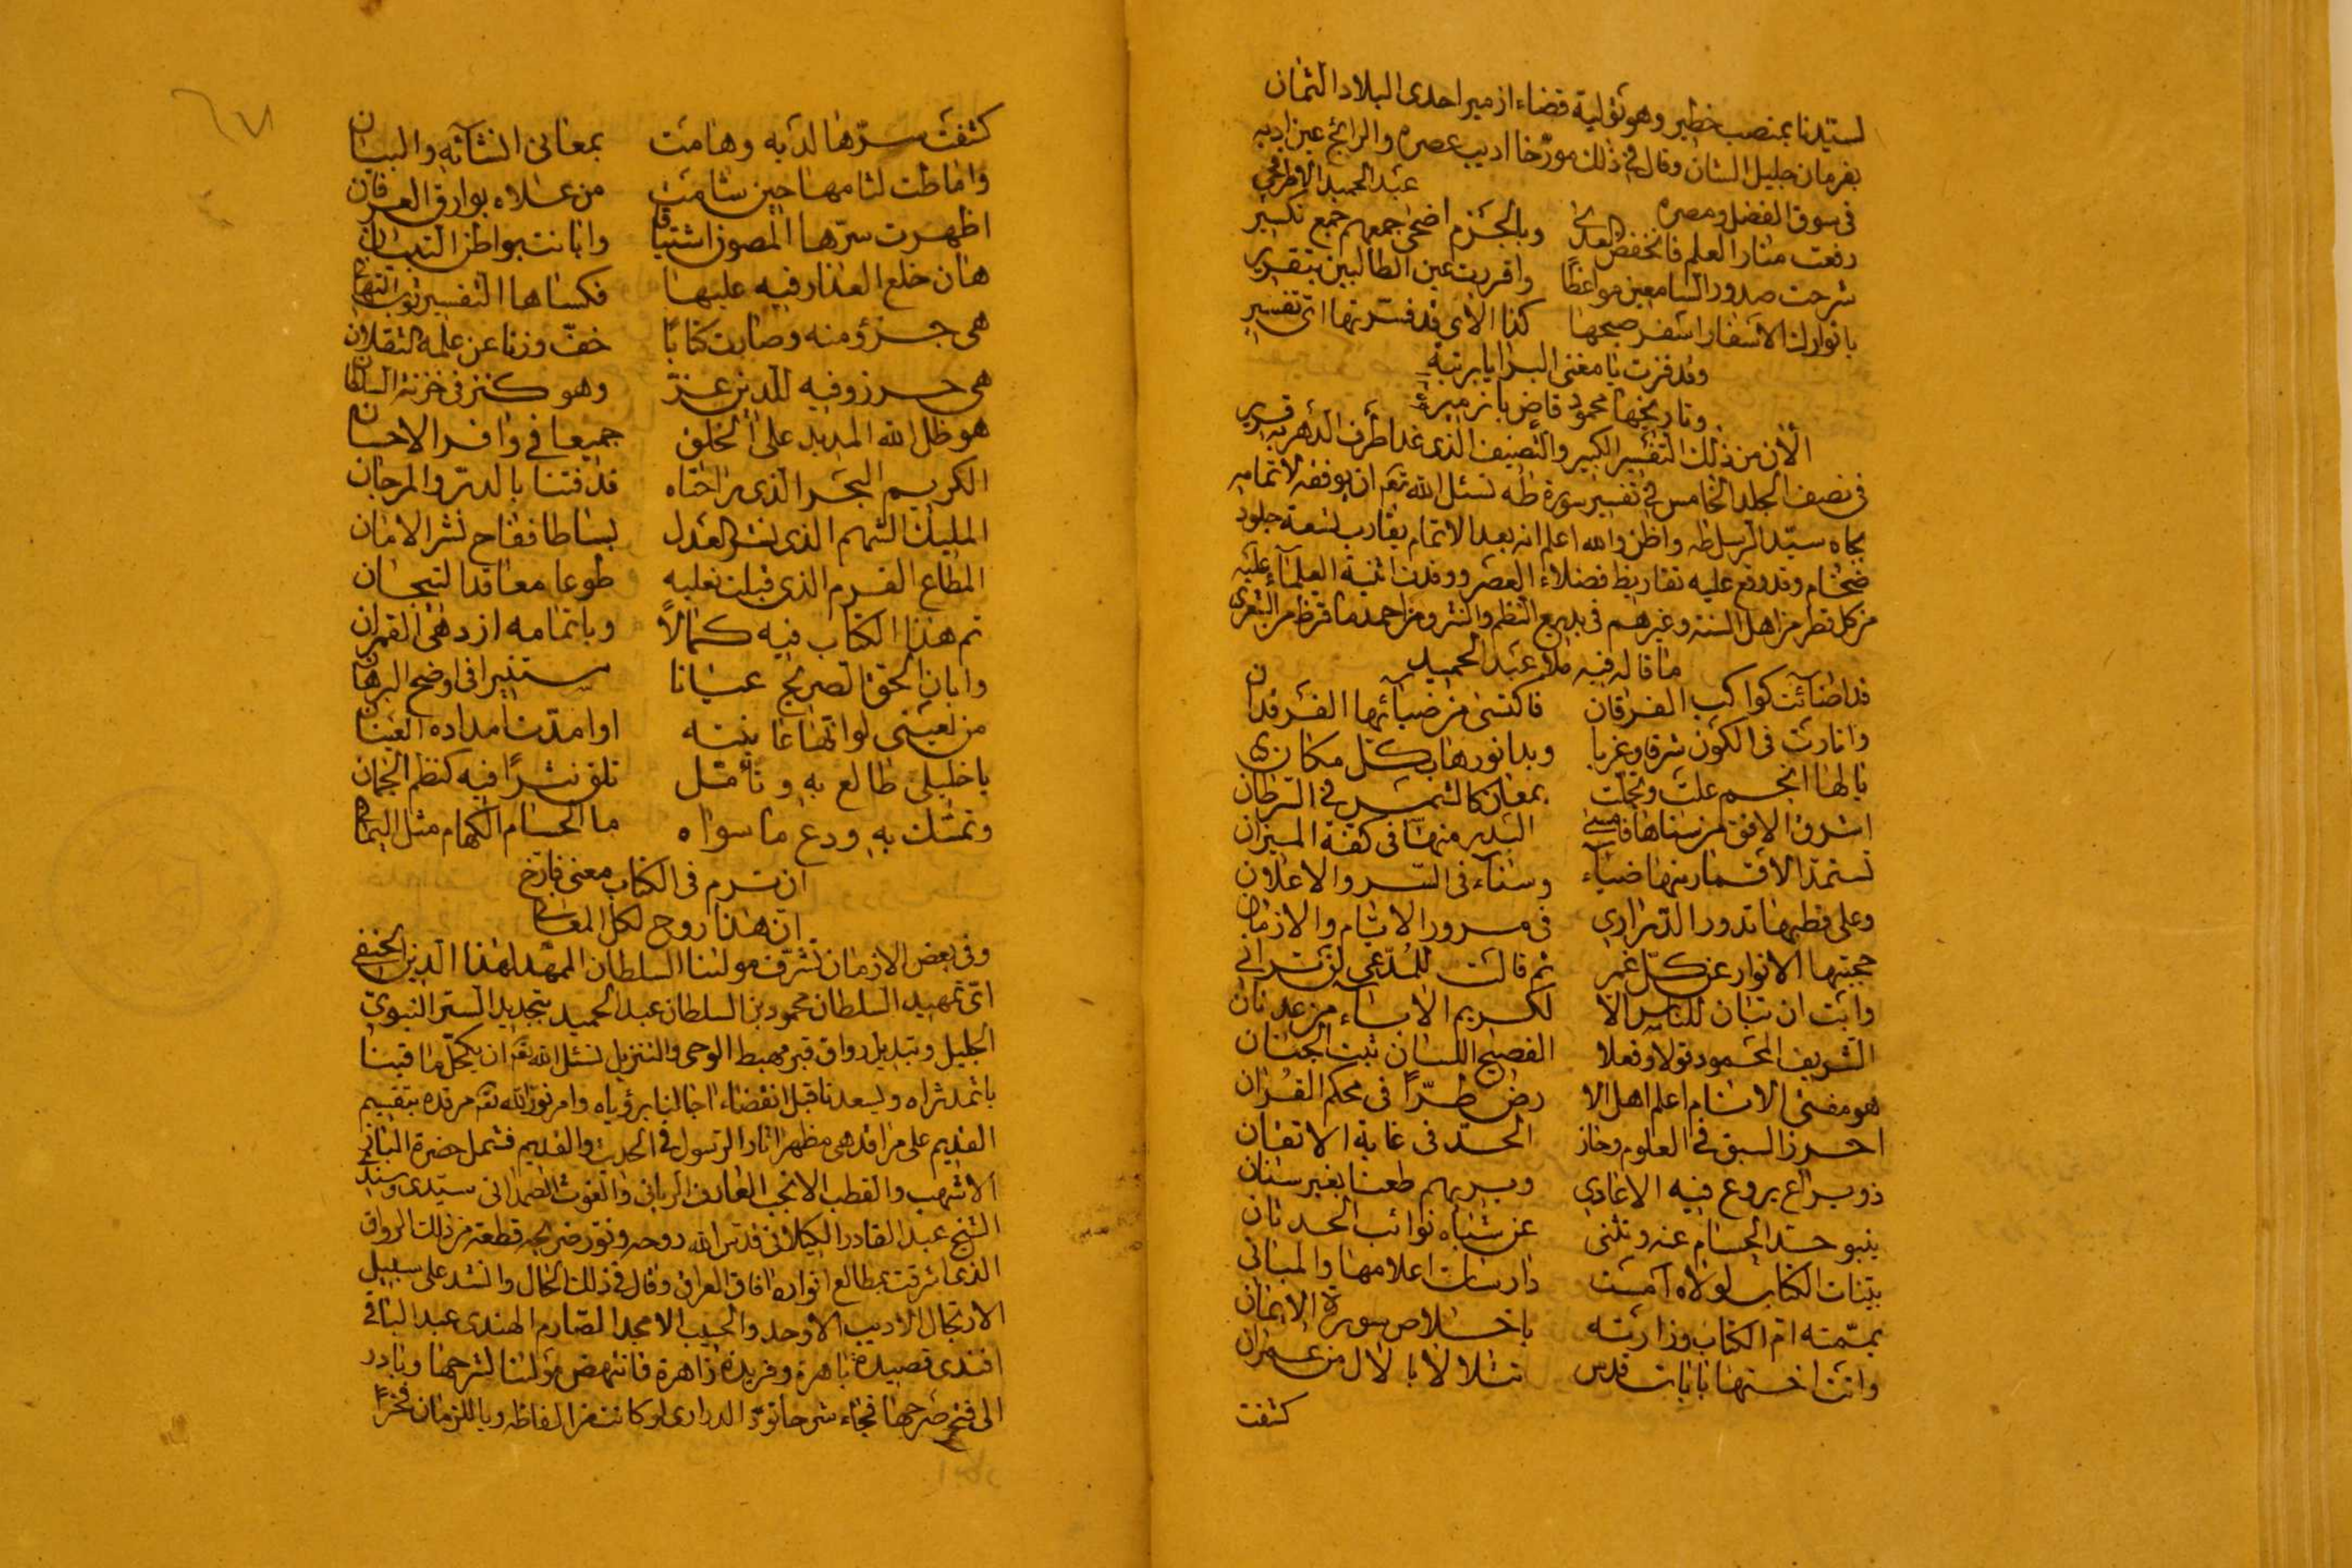 لسيدنا بمنصب خطير وهو تولية قضاء ازمير احدى البلاد الثمان
بفرمان جليل الشان وقال في ذلك مورّخا اديب عصره والرائج عين ادبه
في سوق الفضل ومصره عبد الحميد الاطرقجي
رفعت منار العلم فانخفض العدا وبالجزم اضحى جمعهم جمع تكسير
شرحت صدور السامعين مواعظًا واقررت عين الطالبين بتقرير
بانوارك الاسفار اسفر صبحها كذا الاى قد فسرتها اى تفسير
وقد فزت يا مفتى البرايا برتبة
وتاريخها محمود قاض بازمير
الآن من ذلك التفسير الكبير والتصنيف الذى غدا طرف الدهر به قرير
في نصف الجلد الخامس في تفسير سورة طه نسئل الله تع ان يوفقه لاتمامه
بجاه سيّد الرسل طه واظن والله اعلم انه بعد الاتمام يقارب تسعة جلود
ضخام وقد وقع عليه تقاريظ فضلاء العصر ووفدت اثنية العلماء عليه
من كل قطر من اهل السنة وغيرهم في بديع النظم والنثر ومن احمد ما قرظ من الشعر
ما قاله فيه ملا عبد الحميد
قد اضائت كواكب الفرقان فاكتسى من ضيائها الفرقدان
وانارت في الكون شرقا وغربا وبدا نورها بكل مكان
يا لها انجم علت وتجلّت بمعان كالشمس في السرطان
اشرق الافق من سناها فامسى البدر منها في كفة الميزان
تستمدّ الاقمار منها ضياء وسناء في السر والاعلان
وعلى قطبها تدور الدرارى في مرور الايام والازمان
حجبتها الانوار عن كلّ غمر ثم قالت للمُدّعى لن ترانى
وابت ان تبان للناس الا لكريم الاباء من عدنان
الشريف المحمود قولا وفعلا الفصيح اللسان ثبت الجنان
هو مفتى الانام اعلم اهل الا رض طرّا في محكم القران
احرز السبق في العلوم وحاز الحدّ في غاية الاتقان
ذو يراع يروع فيه الاعادي ويريهم طعنا بغير سنان
ينبو حدّ الحسام عنه وتثنى عن شباه نوائب الحدثان
بيّنات الكتاب لولاه امست دارسات اعلامها والمبانى
يمّمته ام الكتاب وزارته باخلاص سورة الايمان
واتت اختها بايات قدس تتلالا بالال من عمران
كشفت
كشفت سرّها لديه وهامت بمعانى انشائه والبيان
واماطت لثامها حين شامت من علاه بوارق العرفان
اظهرت سرّها المصون اشتياقا وابانت بواطن التبيان
هان خلع العذار فيه عليها فكساها التفسير ثوب التهان
هى جزؤ منه وصابت كتابا خفّ وزنا عن علمه الثقلان
هى حرز وفيه للدين عزّ وهو كنز في خزنة السلطان
هو ظل الله المديد على الخلق جميعا في وافر الاحسان
الكريم البحر الذى راحتاه قذفتنا بالدرّ والمرجان
المليك الشهم الذى نشر العدل بساطا ففاح نشر الامان
المطاع القرم الذى قبلت نعليه طوعا معاقد التيجان
تم هذا الكتاب فيه كمالًا وباتمامه ازدهى القمران
وابان الحق الصريح عيانا مستنيرا في اوضح البرهان
من لعينى لو انّها عاينته او امدّت مداده العينان
يا خليلى طالع به وتأمّل تلق نثرًا فيه كنظم الجمان
وتمسّك به ودع ما سواه ما الحسام الكهام مثل اليمان
ان ترم في الكتاب معنى فارّخ
انّ هذا روح لكل المعانى
وفي بعض الازمان تشرّف مولانا السلطان الممهّد لهذا الدين الحنفى
اىّ تمهيد السلطان محمود بن السلطان عبد الحميد بتجديد الستر النبوىّ
الجليل وتبديل رواق قبر مهبط الوحى والتنزيل نسئل الله تع ان يكحّل ماقينا
باثمد ثراه ويسعدنا قبل انقضاء اجالنا برؤياه وامر نوّر الله تع مرقده بتقسيم
القديم على مراقد هى مظهر اثار الرسول في الحديث والقديم فشمل حضرة الباز
الاشهب والقطب الانجب العارف الربانى والغوث الصمدانى سيّدى وسندى
الشيخ عبد القادر الكيلانى قدّس الله روحه ونوّر ضريحه قطعة من ذلك الرواق
الذى اشرقت بمطالع انواره افاق العراق وقال في ذلك الحال وانشد على سبيل
الارتجال الاديب الاوحد والحسيب الامجد الصارم الهندى عبد الباقى
افندى قصيدة باهرة وفريدة زاهرة فانتهض مولانا لشرحها وبادر
الى فتح صرحها فجاء شرحا تودّ الدرارى لو كانت من الفاظه ويا للزمان فخرًا